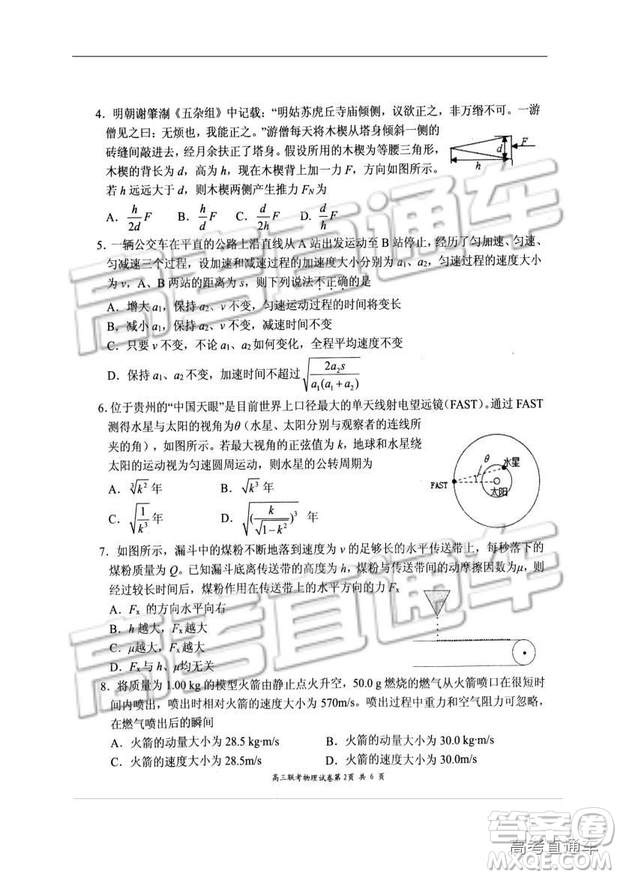 4. 明朝谢肇淛《五杂组》中记载：“明姑苏虎丘寺庙倾侧，议欲正之，非万缗不可。一游
僧见之曰：无烦也，我能正之。”游僧每天将木楔从塔身倾斜一侧的
砖缝间敲进去，经月余扶正了塔身。假设所用的木楔为等腰三角形，
木楔的背长为 d，木楔高为 h，现在木楔背上加一力 F，方向如图所示。
若 h 远远大于 d，则木楔两侧产生推力 F_N 为
d
F
h
A. \frac{h}{2d}F B. \frac{h}{d}F C. \frac{d}{2h}F D. \frac{d}{h}F
5. 一辆公交车在平直的公路上沿直线从 A 站出发运动至 B 站停止，经历了匀加速、匀速、
匀减速三个过程，设加速和减速过程的加速度大小分别为 a₁、a₂，匀速的速度大小
为 v，A、B 两站的距离为 s，则下列说法不正确的是
A. 增大 a₁，保持 a₂、v 不变，匀速运动过程的时间将变长
B. 减小 a₁，保持 a₂、v 不变，匀速运动过程的位移将变小
C. 只要 v 不变，不论 a₁、a₂ 如何变化，全程平均速度大小不变
D. 保持 a₁、a₂ 不变，加速时间不超过 \sqrt{\frac{2a₂s}{a₁(a₁+a₂)}}
6. 位于贵州的“中国天眼”是目前世界上口径最大的单天线射电望远镜（FAST）。通过 FAST
测得水星与太阳的视角为θ（水星、太阳分别与观察者的连线所
夹的角），如图所示。若最大视角的正弦值为 k，地球和水星绕
太阳的运动视为匀速圆周运动，则水星的公转周期为
水星
θ
FAST
太阳
A. \sqrt[3]{k²} 年 B. \sqrt{k³} 年
C. \sqrt{\frac{1}{k³}} 年 D. \sqrt{(\frac{k}{\sqrt{1-k²}})³} 年
7. 如图所示，漏斗中的煤粉不断地落到速度为 v 的足够长的水平传送带上，每秒落下的
煤粉质量为 Q。已知漏斗底离传送带的高度为 h，煤粉与传送带的动摩擦因数为μ，则
经过较长时间后，煤粉作用在传送带上的水平方向力 Fₓ
A. Fₓ 的方向水平向右
B. h 越大，Fₓ越大
C. μ越大，Fₓ越大
D. Fₓ与 h、μ均无关
8. 将质量为 1.00 kg 的模型火箭由静止点火升空，50.0 g 燃烧的燃气从火箭喷口在很短时
间内喷出，喷出时相对火箭的速度大小为 570m/s，喷出过程中重力和空气阻力可忽略，
在燃气喷出后的瞬间
A. 火箭的动量大小为 28.5 kg·m/s B. 火箭的动量大小为 30.0 kg·m/s
C. 火箭的速度大小为 28.5m/s D. 火箭的速度大小为 30.0m/s
高三联考物理试卷第2页 共 6 页
高考直通车
高考直通车
高考直通车
答案圈
MXQE.COM